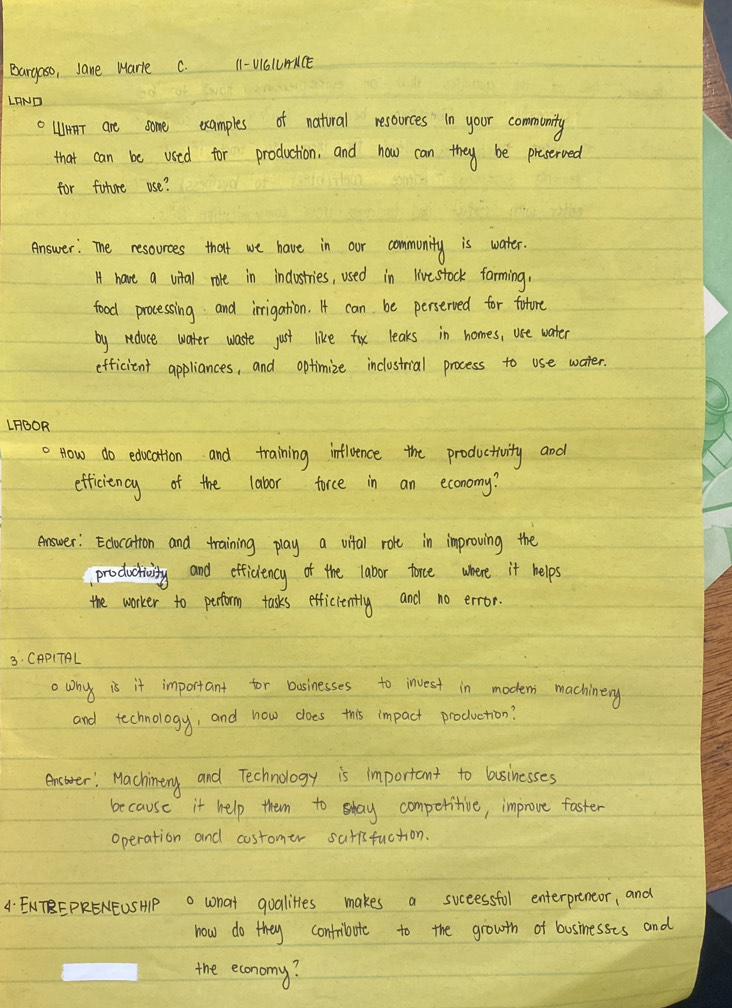 Bargoso, Jane Marie C. 11-VIGILANCE
LAND
○ WHAT are some examples of natural resources in your community
that can be used for production, and how can they be preserved
for future use?
Answer: The resources that we have in our community is water.
It have a vital role in industries, used in livestock farming,
food processing and irrigation. It can be perserved for future
by reduce water waste just like fix leaks in homes, use water
efficient appliances, and optimize industrial process to use water.
LABOR
○ How do education and training influence the productivity and
efficiency of the labor force in an economy?
Answer: Education and training play a vital role in improving the
productivity and efficiency of the labor force where it helps
the worker to perform tasks efficiently and no error.
3. CAPITAL
○ Why is it important for businesses to invest in modern machinery
and technology, and how does this impact production?
Answer: Machinery and Technology is important to businesses
because it help them to stay competitive, improve faster
operation and customer satisfaction.
4. ENTREPRENEUSHIP ○ what qualities makes a successful enterpreneur, and
how do they contribute to the growth of businesses and
the economy?